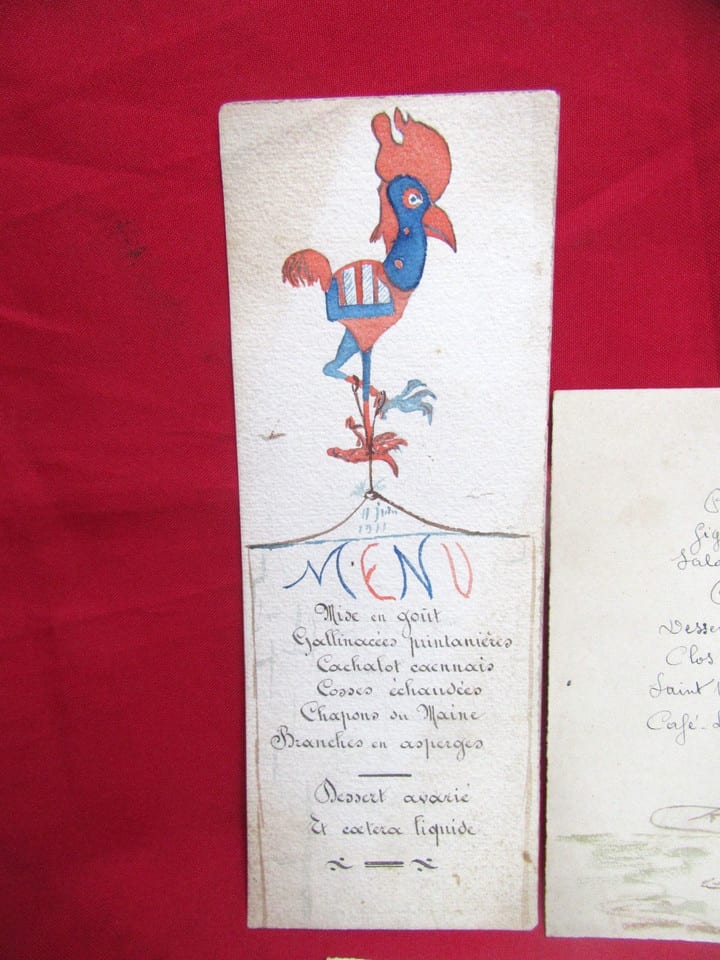 juin
1911
MENU
Mise en goût
Gallinacées printanières
Cachalot caennais
Cosses échaudées
Chapons du Maine
Branches en asperges
Dessert avarié
Et cætera liquide
Gig
Sala
Desse
Clos
Saint
Café